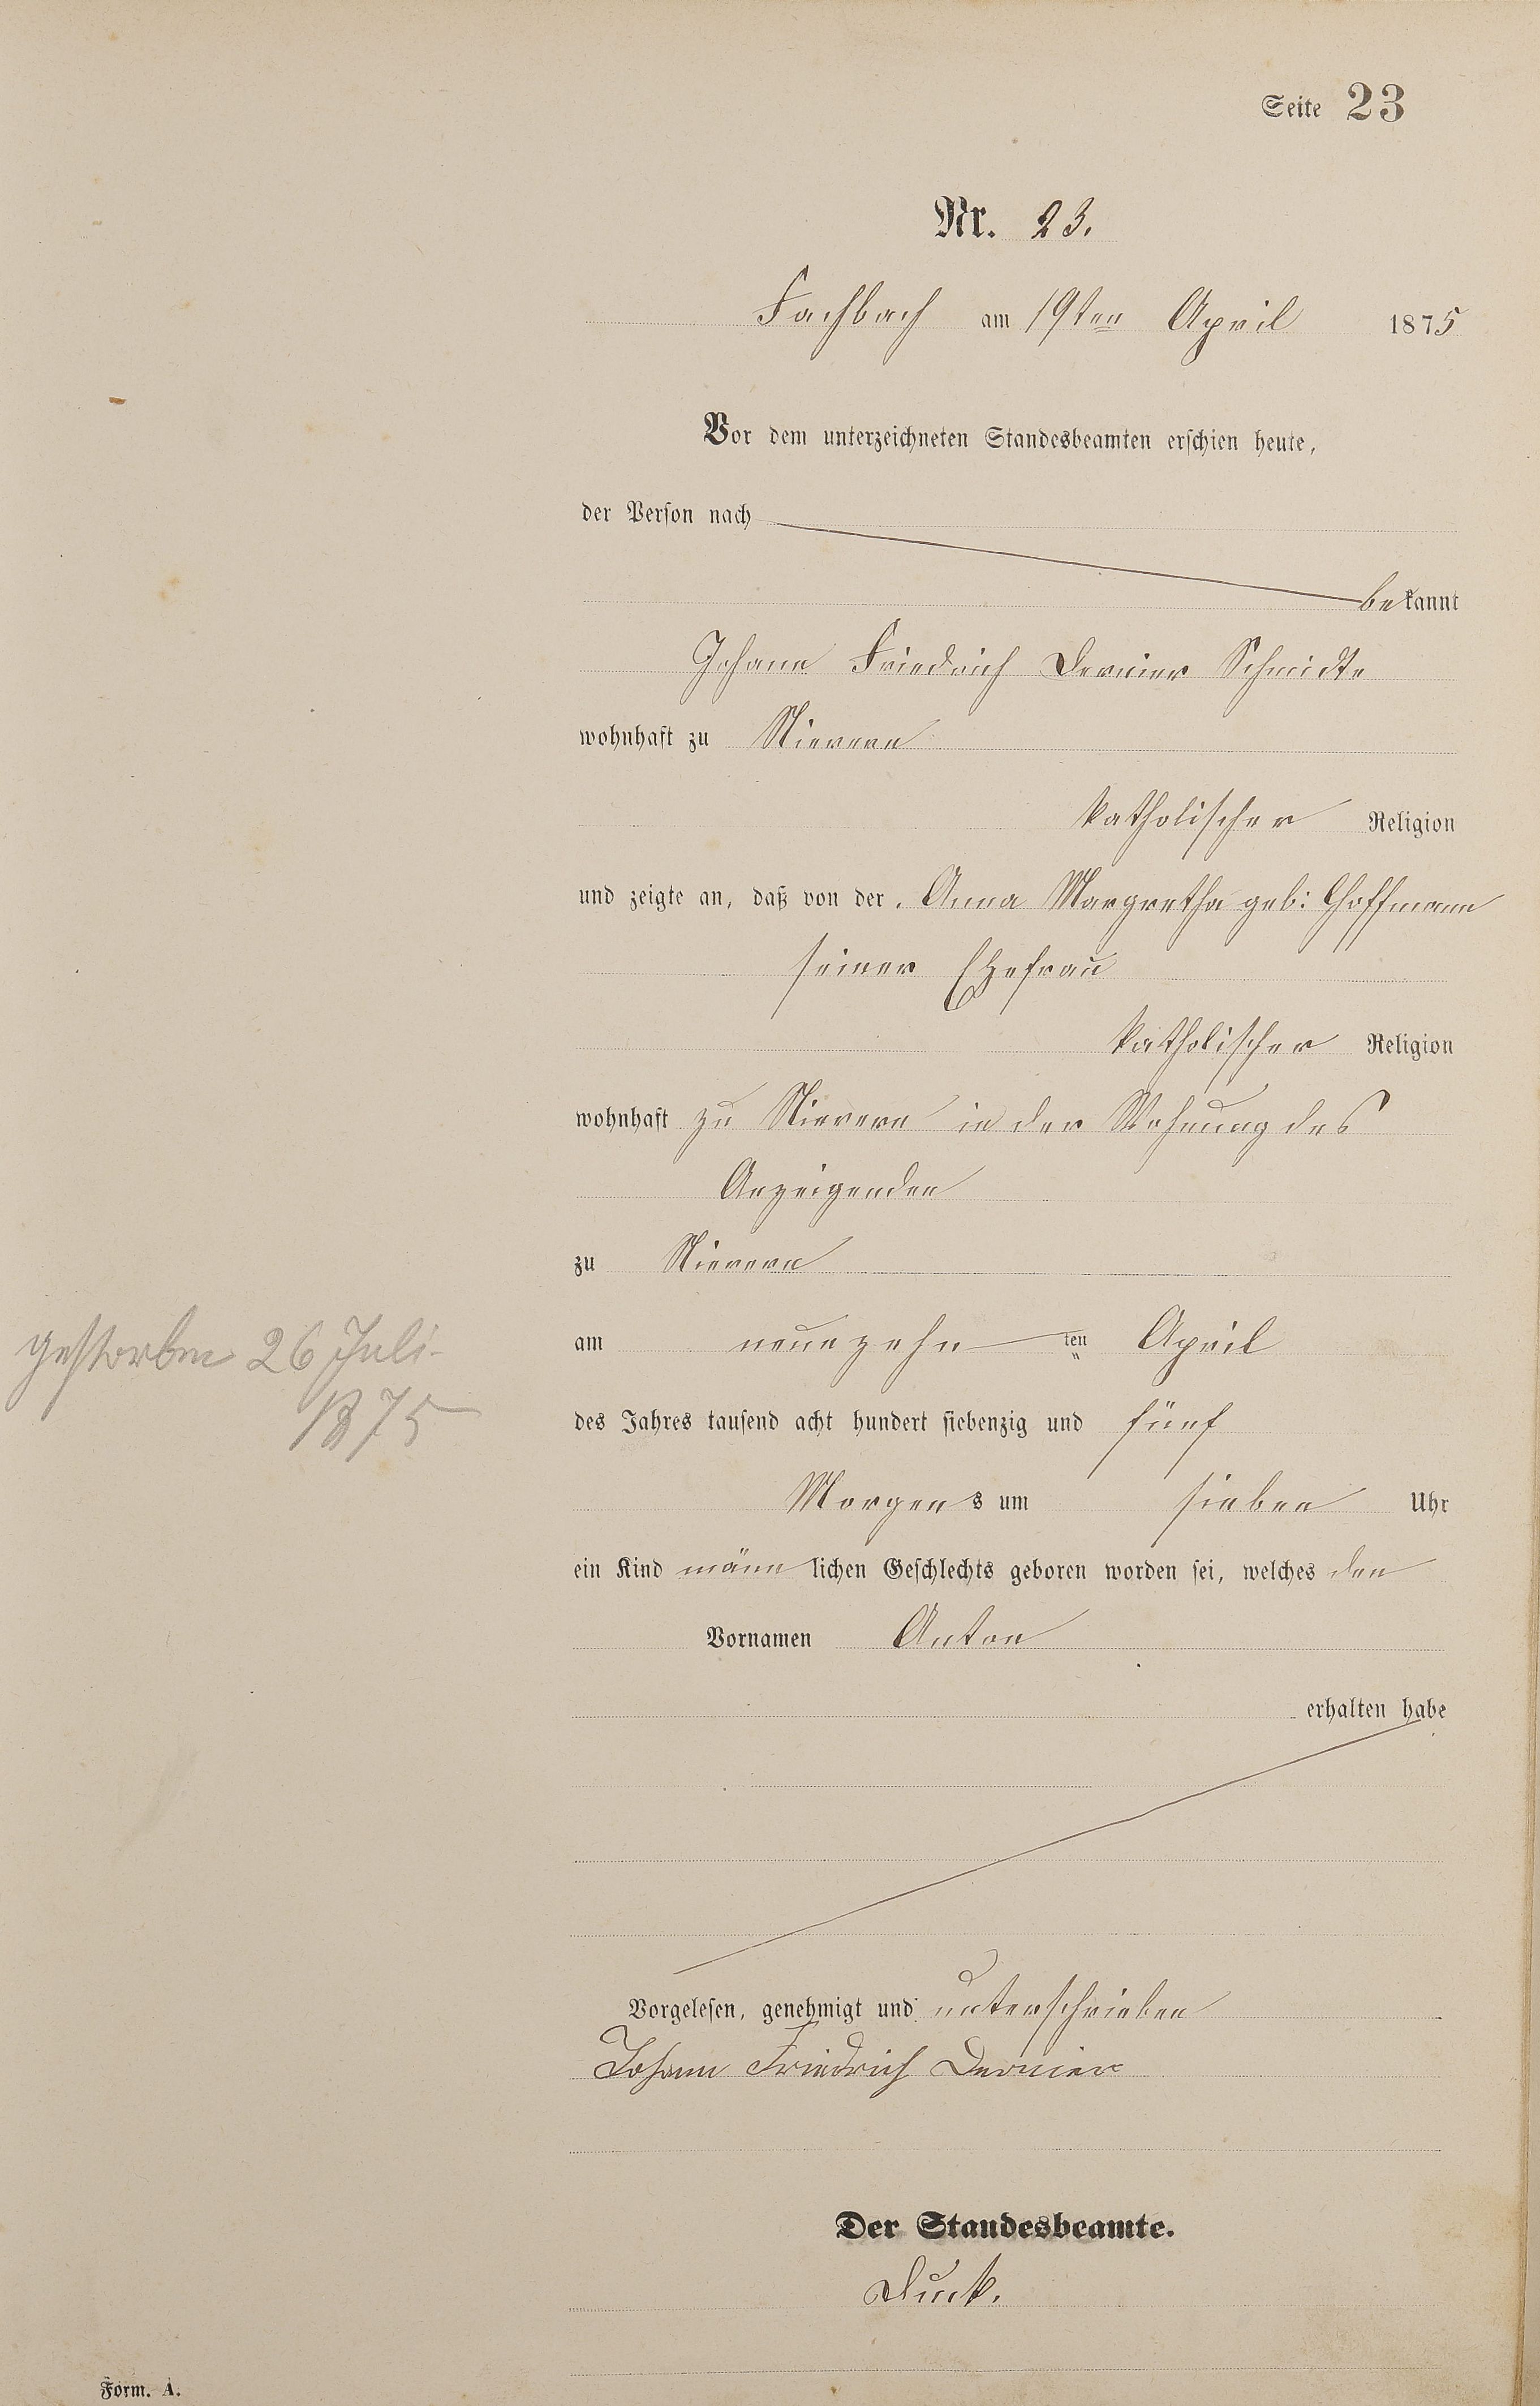 Seite 23
Nr. 23.
Fachbach am 19ten April 1875
Vor dem unterzeichneten Standesbeamten erschien heute,
der Person nach
bekannt
Johann Friedrich Dernier Schmidte
wohnhaft zu Nievern
katholischer Religion
und zeigte an, daß von der Anna Margretha geb: Hoffmann
seiner Ehefrau
katholischer Religion
wohnhaft zu Nievern in der Wohnung des
Anzeigenden
zu Nievern
am neunzehn ten April
gestorben 26 Juli
1875
des Jahres tausend acht hundert siebenzig und fünf
Morgens um sieben Uhr
ein Kind männlichen Geschlechts geboren worden sei, welches den
Vornamen Anton
erhalten habe
Vorgelesen, genehmigt und unterschrieben
Johann Friedrich Dernier
Der Standesbeamte.
Form. A.